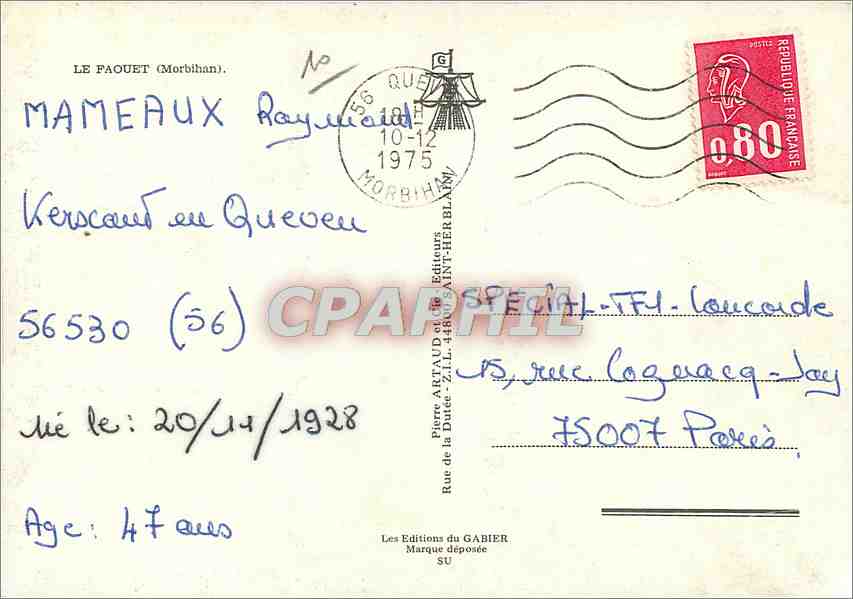 LE FAOUET (Morbihan).
MAMEAUX Raymond
Kerscant en Queven
56530 (56)
né le : 20/11/1928
Age : 47 ans
G
56 QUE
18H
10-12
1975
MORBIHAN
POSTES
REPUBLIQUE FRANÇAISE
0,80
CPAPHIL
Pierre ARTAUD et Cie - Editeurs
Rue de la Dutée - Z.I.L. 44800 SAINT-HERBLAIN
SPECIAL-TF1-Concorde
15, rue Cognacq-Jay
75007 Paris
Les Editions du GABIER
Marque déposée
SU